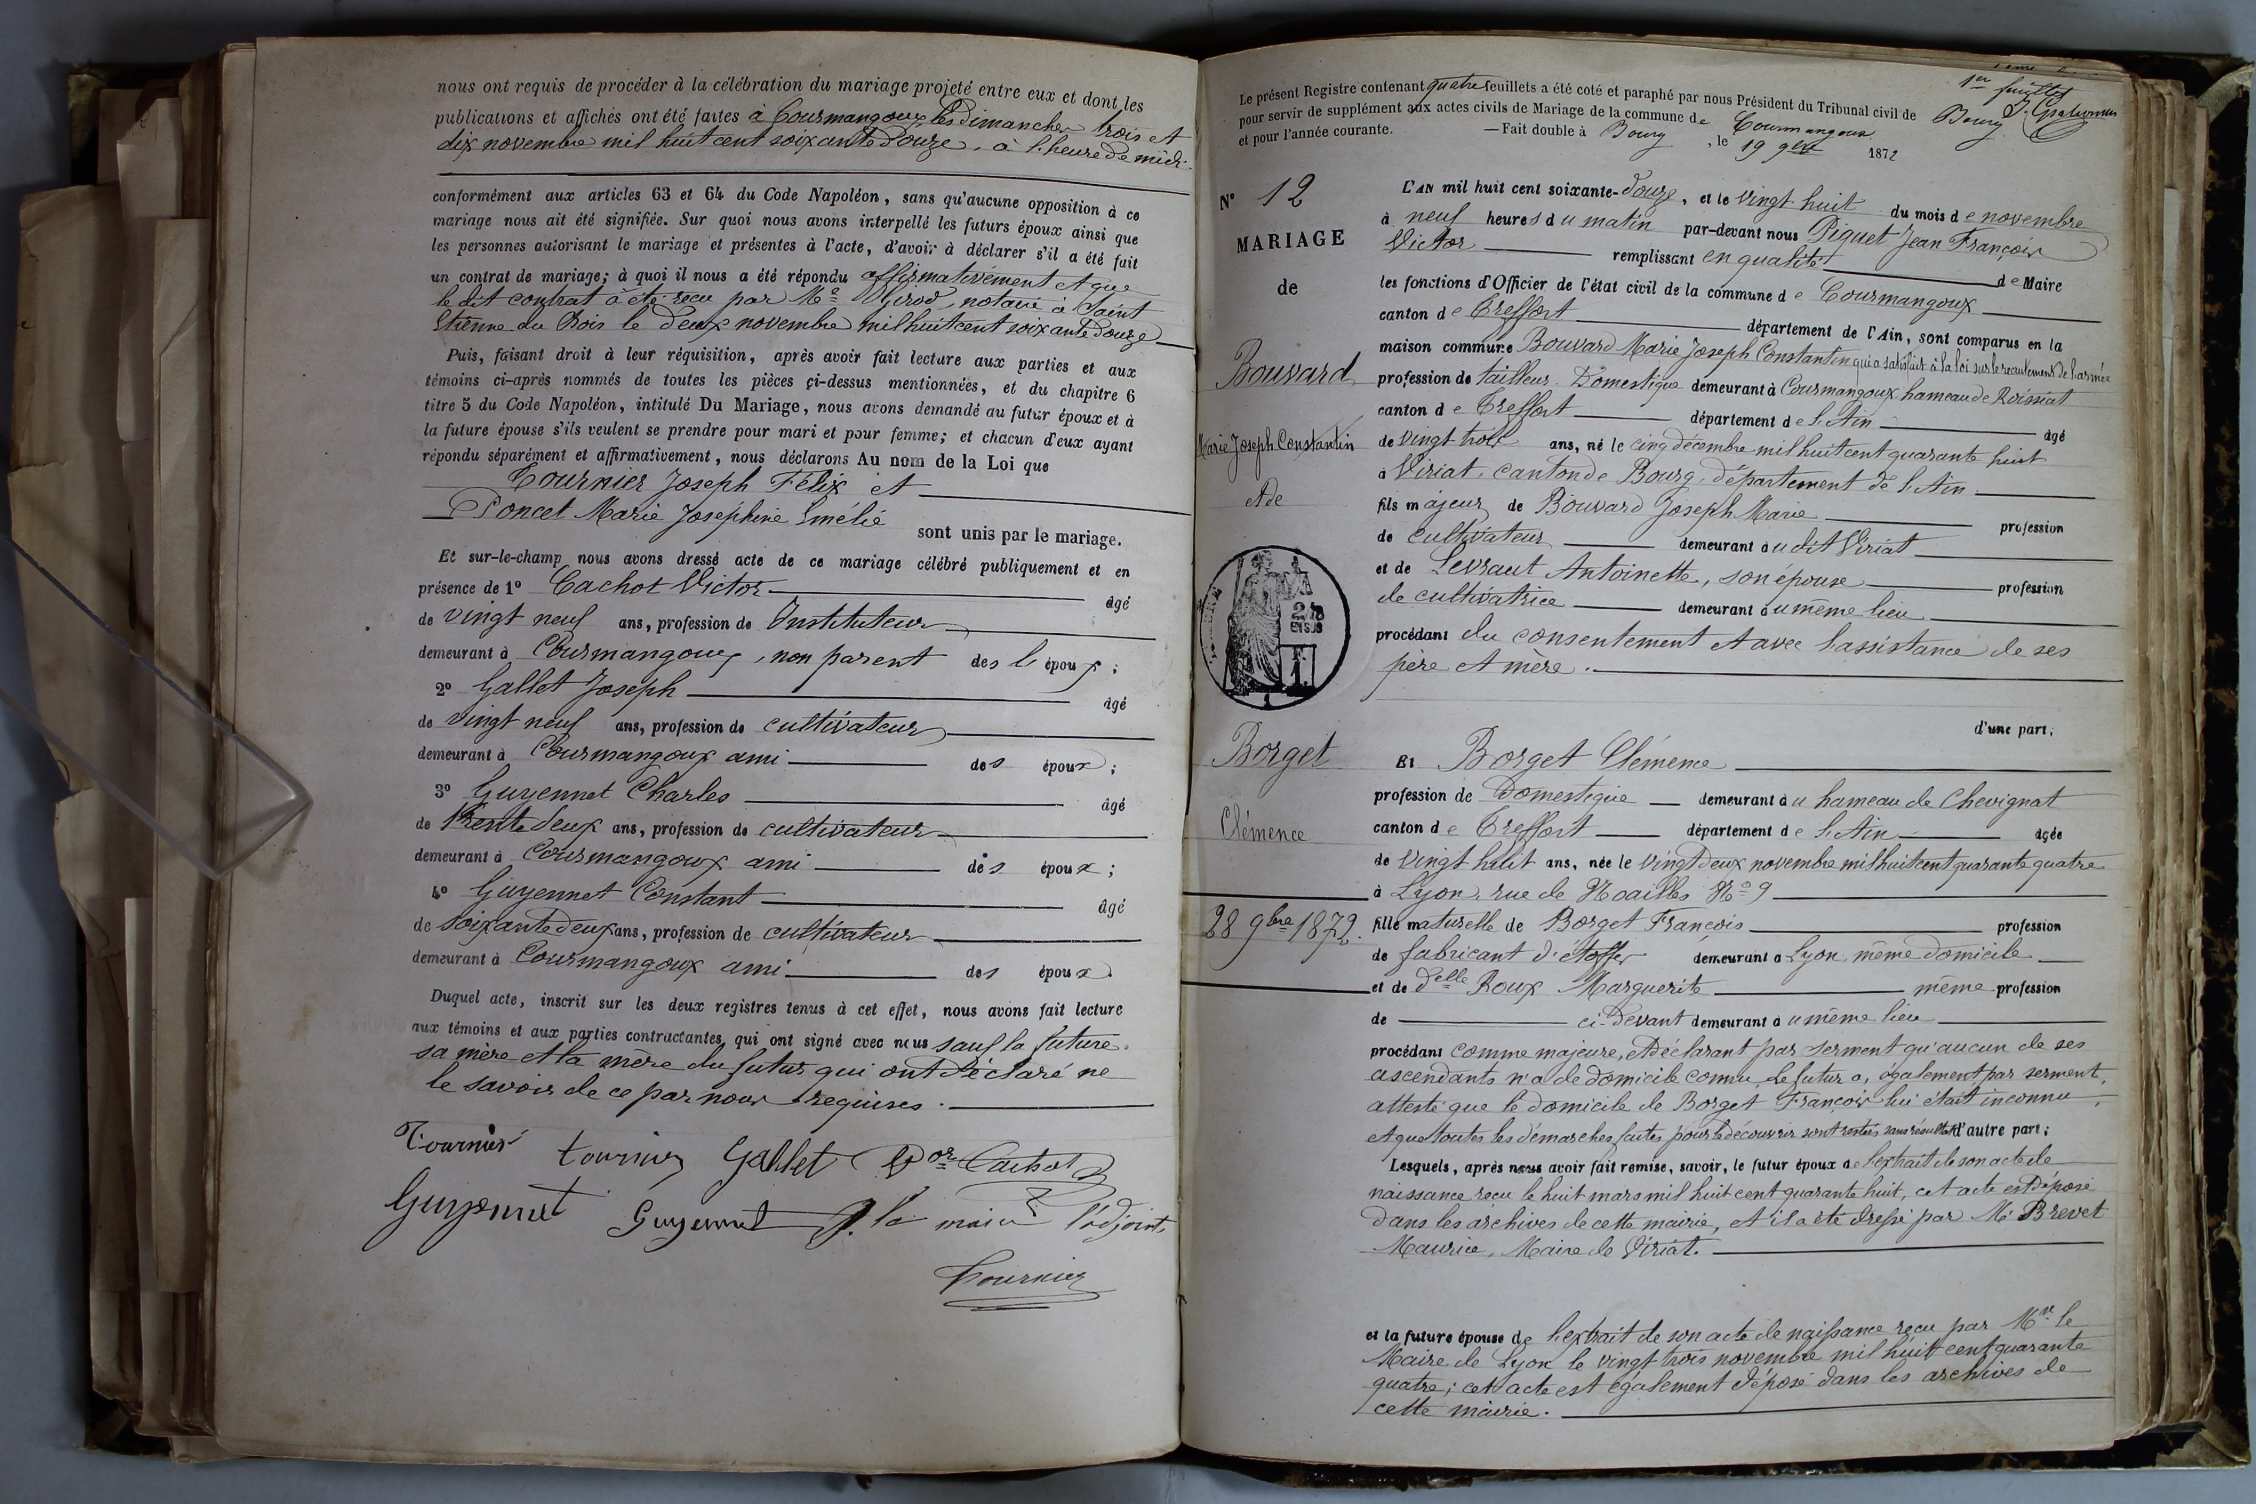 nous ont requis de procéder à la célébration du mariage projeté entre eux et dont les
publications et affiches ont été faites à Courmangoux les dimanches trois et
dix novembre mil huit cent soixante douze, à l'heure de midi.
conformément aux articles 63 et 64 du Code Napoléon, sans qu'aucune opposition à ce
mariage nous ait été signifiée. Sur quoi nous avons interpellé les futurs époux ainsi que
les personnes autorisant le mariage et présentes à l'acte, d'avoir à déclarer s'il a été fait
un contrat de mariage; à quoi il nous a été répondu affirmativement et que
le dit contrat a été reçu par Me Girod, notaire à Saint
Etienne du Bois le deux novembre mil huit cent soixante douze
Puis, faisant droit à leur réquisition, après avoir fait lecture aux parties et aux
témoins ci-après nommés de toutes les pièces çi-dessus mentionnées, et du chapitre 6
titre 5 du Code Napoléon, intitulé Du Mariage, nous avons demandé au futur époux et à
la future épouse s'ils veulent se prendre pour mari et pour femme; et chacun d'eux ayant
répondu séparément et affirmativement, nous déclarons Au nom de la Loi que
Tournier Joseph Félix et
Poncet Marie Josephine Emélie
sont unis par le mariage.
Et sur-le-champ nous avons dressé acte de ce mariage célébré publiquement et en
présence de 1° Cachot Victor âgé
de vingt neuf ans, profession de Instituteur
demeurant à Courmangoux, non parent des époux;
2° Gallet Joseph âgé
de vingt neuf ans, profession de cultivateur
demeurant à Courmangoux ami des époux;
3° Guyennet Charles âgé
de trente deux ans, profession de cultivateur
demeurant à Courmangoux ami des époux;
4° Guyennet Constant âgé
de soixante deux ans, profession de cultivateur
demeurant à Courmangoux ami des époux.
Duquel acte, inscrit sur les deux registres tenus à cet effet, nous avons fait lecture
aux témoins et aux parties contractantes, qui ont signé avec nous sauf la future
sa mère et la mère du futur qui ont déclaré ne
le savoir de ce par nous requises.
Tournier tournier Gallet Vor Cachot
Guyennet Guyennet P. le maire l'adjoint
Tournier
1er feuillet
Le présent Registre contenant quatre feuillets a été coté et paraphé par nous Président du Tribunal civil de Bourg
pour servir de supplément aux actes civils de Mariage de la commune de Courmangoux
et pour l'année courante. — Fait double à Bourg, le 19 9bre 1872
N° 12
MARIAGE
de
Bouvard
Marie Joseph Constantin
et de
TIMBRE
2/10
EN SUS
1F
Borget
Clémence
28 9bre 1872.
L'AN mil huit cent soixante-douze, et le vingt huit du mois de novembre
à neuf heures du matin par-devant nous Piquet Jean François
Victor remplissant en qualité de Maire
les fonctions d'Officier de l'état civil de la commune de Courmangoux
canton de Treffort département de l'Ain, sont comparus en la
maison commune Bouvard Marie Joseph Constantin qui a satisfait à la loi sur le recrutement de l'armée
profession de tailleur Domestique demeurant à Courmangoux hameau de Roissiat
canton de Treffort département de l'Ain âgé
de vingt trois ans, né le cinq décembre mil huit cent quarante huit
à Viriat, canton de Bourg, département de l'Ain
fils majeur de Bouvard Joseph Marie profession
de cultivateur demeurant au dit Viriat
et de Levraut Antoinette, son épouse profession
de cultivatrice demeurant au même lieu
procédant du consentement et avec l'assistance de ses
père et mère.
d'une part;
Et Borget Clémence
profession de Domestique demeurant au hameau de Chevignat
canton de Treffort département de l'Ain âgée
de vingt huit ans, née le vingt deux novembre mil huit cent quarante quatre
à Lyon, rue de Noailles No 9
fille naturelle de Borget François profession
de fabricant d'étoffes demeurant à Lyon même domicile
et de delle Roux Marguerite même profession
de ci-devant demeurant au même lieu
procédant comme majeure, et déclarant par serment qu'aucun de ses
ascendants n'a de domicile connu, le futur a, également par serment,
attesté que le domicile de Borget François lui était inconnu,
et que toutes les démarches faites pour le découvrir sont restées sans résultat d'autre part;
Lesquels, après nous avoir fait remise, savoir, le futur époux de l'extrait de son acte de
naissance reçu le huit mars mil huit cent quarante huit, cet acte est déposé
dans les archives de cette mairie, et il a été dressé par Mr Brevet
Maurice, Maire de Viriat.
et la future épouse de l'extrait de son acte de naissance reçu par Mr le
Maire de Lyon le vingt trois novembre mil huit cent quarante
quatre; cet acte est également déposé dans les archives de
cette mairie.